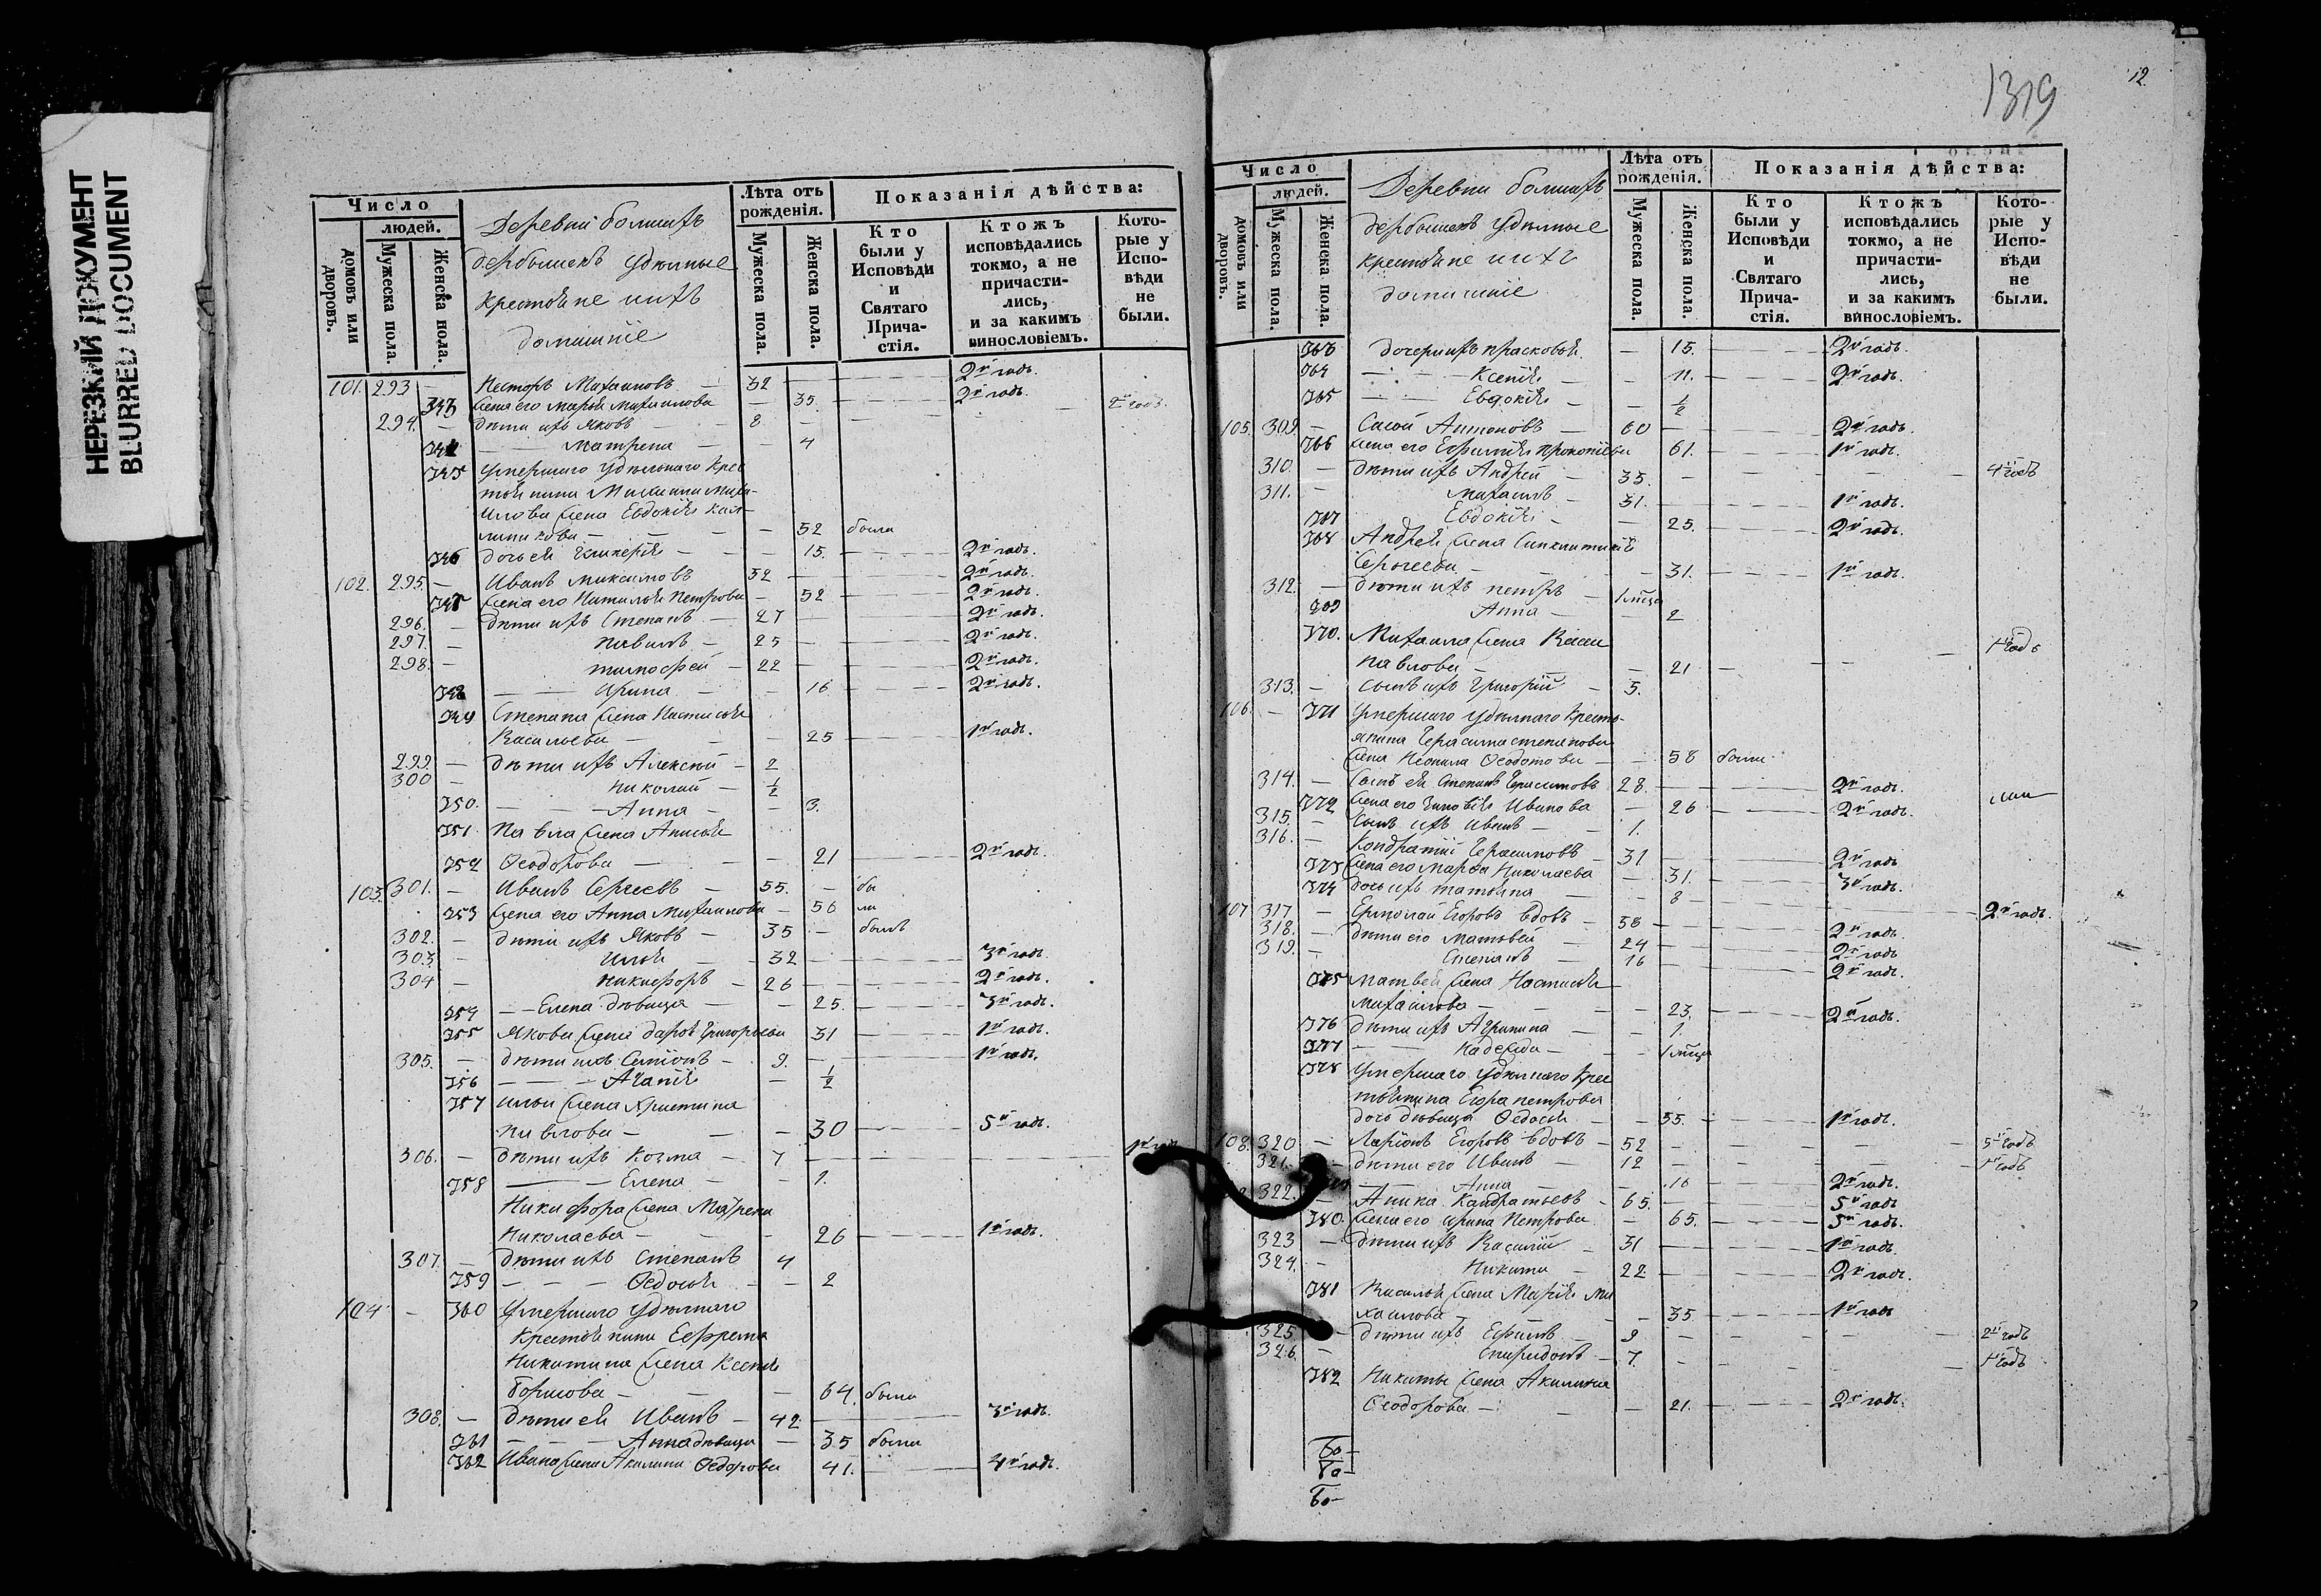 НЕРЕЗКИЙ ДОКУМЕНТ
BLURRED DOCUMENT
Число
людей.
домовъ или дворовъ.
Мужеска пола.
Женска пола.
Деревни большихъ
дербышекъ удѣльные
крестьяне и ихъ
домашніе
Лѣта отъ рожденія.
Мужеска пола.
Женска пола.
Показанія дѣйства:
Кто были у Исповѣди и Святаго Прича-стія.
Ктожъ исповѣдались токмо, а не причасти-лись, и за какимъ винословіемъ.
Кото-рые у Испо-вѣди не были.
101. 293 — Несторъ Михаиловъ — 32 2й годъ.
343 Жена его Марья Михаилова — 35. 2й годъ.
294. — дѣти ихъ Яковъ — 8 — 2й годъ.
344 — Матрена — 4
345 Умершаго удѣльнаго крес
тьянина Михаила Миха-
илова жена Евдокія
— 52 была
346 дочь ея Гликерія — 15. 2й годъ.
102. 295. — Иванъ Максимовъ 52 2й годъ.
347 Жена его Наталья Петрова — 52 2й годъ.
296. — дѣти ихъ Степанъ — 27 2й годъ.
297. — Павелъ — 25 2й годъ.
298. — Тимофей — 22 2й годъ.
348 — Ирина — 16 2й годъ.
349 Степана жена Настасья
Васильева — 25 1й годъ.
299. — дѣти ихъ Алексѣй — 2
300 — Николай — ½
350. — Анна — 3.
351 Павла жена Анисья
352 Ѳеодорова — 21 2й годъ.
103. 301. — Иванъ Сергѣевъ — 55. — бы
353 Жена его Анна Михаилова — 56 ли
302. — дѣти ихъ Яковъ — 35 — былъ
303. — Илья — 32 3й годъ.
304 — Никифоръ — 26 2й годъ.
354 — Елена дѣвица — 25. 3й годъ.
355 Якова жена Дарья Григорьева 31 1й годъ.
305. — дѣти ихъ Симіонъ — 9. — 1й годъ.
356 — Агапія — ½
357 Ильи жена Христина
Павлова — 30 5й годъ.
306. — дѣти ихъ Козма — 7 1й годъ
358 — Елена — 1.
Никифора жена Матрена
Николаева — 26 1й годъ.
307. — дѣти ихъ Степанъ 4
359 — Ѳедосья — 2
104. — 360 Умершаго удѣльнаго
крестьянина Ефрема
Никитина жена Ксенія
— 64. была
308. — дѣти ея Иванъ — 42 3й годъ.
361 — Анна дѣвица — 35 была
362 Ивана жена Акилина Ѳедорова 41. 4й годъ.
1319
12
Число
людей.
домовъ или дворовъ.
Мужеска пола.
Женска пола.
Деревни большихъ
дербышекъ удѣльные
крестьяне и ихъ
домашніе
Лѣта отъ рожденія.
Мужеска пола.
Женска пола.
Показанія дѣйства:
Кто были у Исповѣди и Святаго Прича-стія.
Ктожъ исповѣдались токмо, а не причасти-лись, и за какимъ винословіемъ.
Кото-рые у Испо-вѣди не были.
363 дочери ихъ Прасковья — 15. 2й годъ.
364 — Ксенія — 11. 2й годъ.
365 — Евдокія — ½
105. 309. — Антоновъ — 60 — 2й годъ.
366 Жена его Прокопіева 61. 1й годъ.
310. — дѣти ихъ Андрей — 35. — 4й годъ
311. — Михаилъ — 31. 1й годъ.
367 Евдокія — 25. 2й годъ.
368 Андрея жена Синклитикія
Сергѣева — 31. 1й годъ.
312. — дѣти ихъ Петръ — 1 мѣца
369 Анна — 2
370. Михаила жена Васса
Павлова — 21 — 1й годъ
313. — сынъ ихъ Григорій — 3.
106. — 371 Умершаго удѣльнаго кресть-
янина Герасима Степанова
жена Неонила Ѳеодотова — 58 была
314. — сынъ ея Степанъ Герасимовъ 28. — 2й годъ.
372 Жена его Зиновія Иванова — 26 2й годъ.
315. — сынъ ихъ Иванъ — 1.
316. — Кондратій Герасимовъ — 31 2й годъ
373 Жена его Марфа Николаева — 31. 3й годъ.
374 дочь ихъ Татьяна — 8 2й годъ.
107 317 — Ермолай Егоровъ вдовъ — 58 2й годъ.
318. — дѣти его Матвѣй — 24 2й годъ
319. — Степанъ — 16 2й годъ.
375 Матвѣя жена Настасья
Михайлова — 23. 2й годъ.
376 дѣти ихъ Агрипина — 1.
377 — Надежда — 1 мѣца
378 Умершаго удѣльнаго крес
тьянина Егора Петрова
дочь дѣвица Ѳедосья — 55. 1й годъ.
108. 320 — Ларіонъ Егоровъ вдовъ — 52 5й годъ
321. — дѣти его Иванъ — 12 1й годъ
— Анна — 16 2й годъ.
322. — Аника Кандратьевъ — 65. 5й годъ
380. Жена его Ирина Петрова — 65. 5й годъ.
323 — дѣти ихъ Василій — 31 1й годъ.
324. — Никита — 22 2й годъ.
381 Василья жена Марія Ми
хаилова — 35. 1й годъ
325 — дѣти ихъ Ефимъ — 9 2й годъ
326. — Спиридонъ — 7. 1й годъ
382 Никиты жена Акилина
Ѳеодорова — 21. 2й годъ.